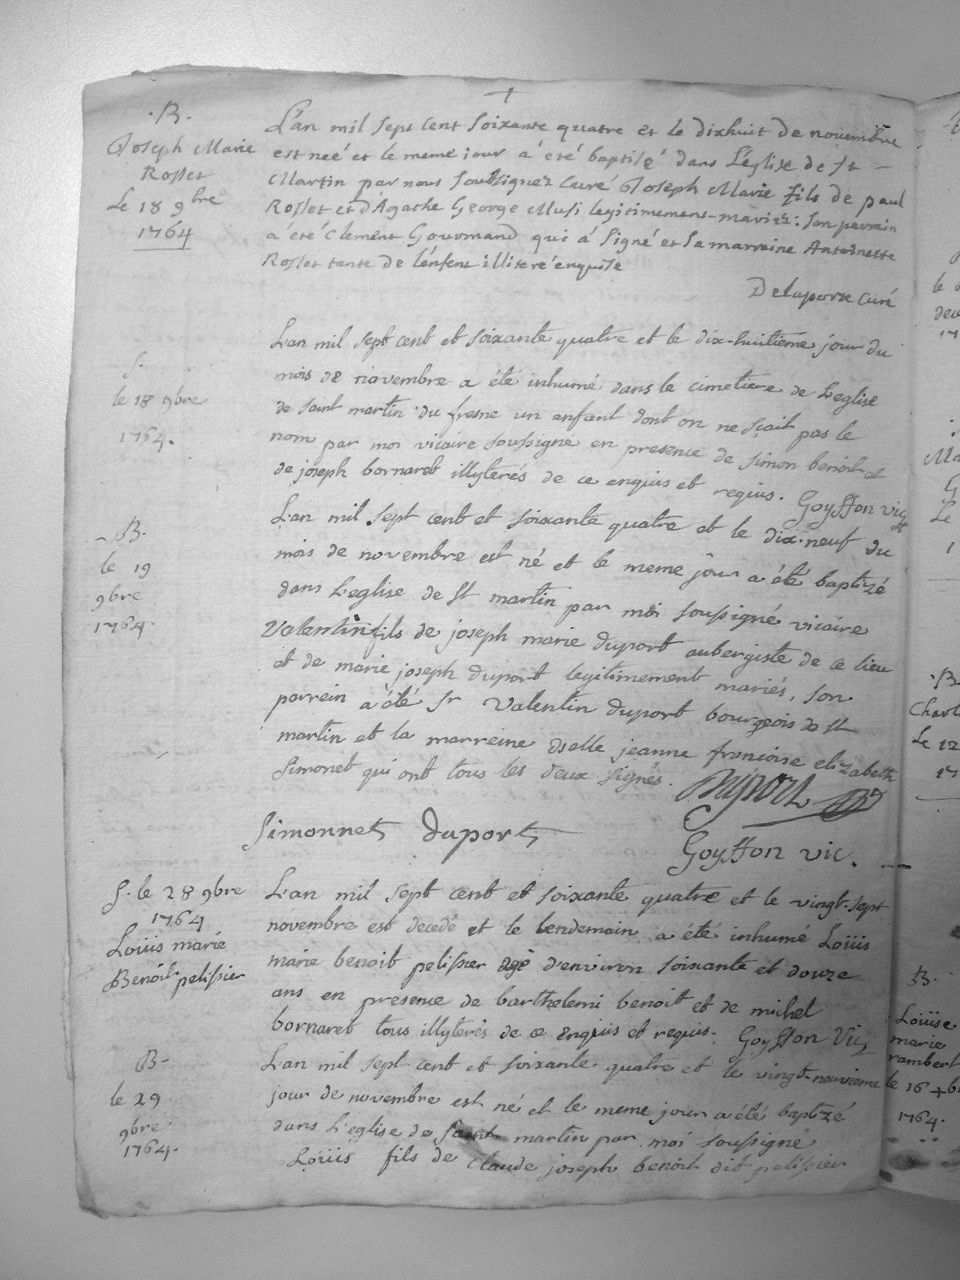 .B.
Joseph Marie
Rosset
Le 18 9bre
1764
L'an mil sept cent soixante quatre et le dixhuit de novembre
est neé et le meme jour a été baptisé dans L'église de St
Martin par nous soussignez curé Joseph Marie fils de paul
Rosset et d'Agathe George Musi legitimement mariez: son parrain
a été Clement Gourmand qui a signé et sa marraine Antoinette
Rosset tante de l'enfent illiteré enquise
Delaporte curé
S.
le 18 9bre
1764.
L'an mil sept cent et soixante quatre et le dix-huitieme jour du
mois de novembre a été inhumé dans le cimetiere de L'eglise
de saint martin du fresne un enfant dont on ne sçait pas le
nom par moi vicaire soussigne en presence de simon benoit et
de joseph bornaret illyterés de ce enquis et requis. Goyffon vic
- B.
le 19
9bre
1764.
L'an mil sept cent et soixante quatre et le dix-neuf du
mois de novembre est né et le meme jour a été baptizé
dans L'eglise de St martin par moi soussigné vicaire
Valentin fils de joseph marie duport aubergiste de ce lieu
et de marie joseph duport legitimement mariés, son
parrein a été Sr Valentin duport bourgeois de St
martin et la marreine dselle jeanne francoise elizabeth
Simonet qui ont tous les deux signés. Duport
Simonnet duport
Goyffon vic.
S. le 28 9bre
1764
Loüis marie
Benoit pelissier
L'an mil sept cent et soixante quatre et le vingt-sept
novembre est decedé et le lendemain a été inhumé Loüis
marie benoit pelissier agé d'environ soixante et douze
ans en presence de barthelemi benoit et de michel
bornaret tous illyterés de ce enquis et requis. Goyffon Vic
B-
le 29
9bre
1764.
L'an mil sept cent et soixante quatre et le vingt-neuvieme
jour de novembre est né et le meme jour a été baptizé
dans L'eglise de saint martin par moi soussigné
Loüis fils de Claude joseph benoit dit pelissier
B.
Le 12
B.
Loüise
marie
rambert
le 16
1764.